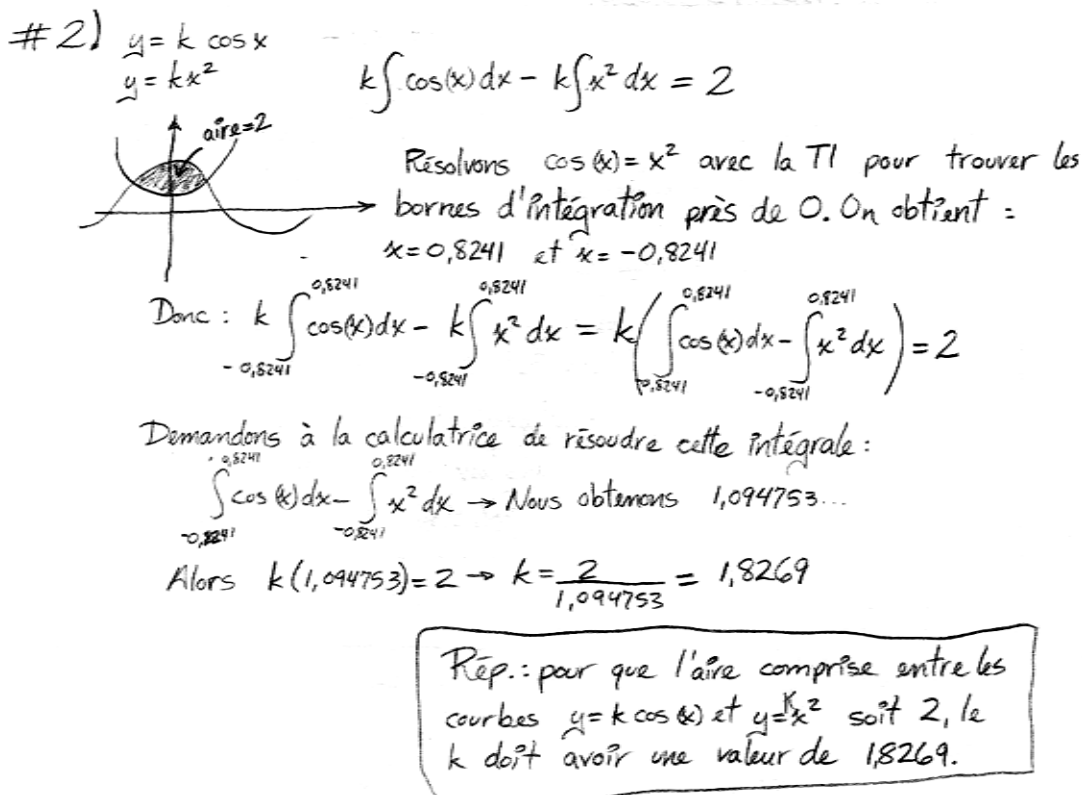 #2) y = k cos x
y = kx²
k∫cos(x)dx - k∫x²dx = 2
aire=2
Résolvons cos(x) = x² avec la TI pour trouver les
bornes d'intégration près de 0. On obtient :
x = 0,8241 et x = -0,8241
Donc : k ∫_{-0,8241}^{0,8241} cos(x)dx - k ∫_{-0,8241}^{0,8241} x² dx = k( ∫_{-0,8241}^{0,8241} cos(x)dx - ∫_{-0,8241}^{0,8241} x² dx ) = 2
Demandons à la calculatrice de résoudre cette intégrale :
∫_{-0,8241}^{0,8241} cos(x)dx - ∫_{-0,8241}^{0,8241} x² dx → Nous obtenons 1,094753...
Alors k(1,094753) = 2 → k = 2/1,094753 = 1,8269
Rép. : pour que l'aire comprise entre les
courbes y = k cos(x) et y = kx² soit 2, le
k doit avoir une valeur de 1,8269.